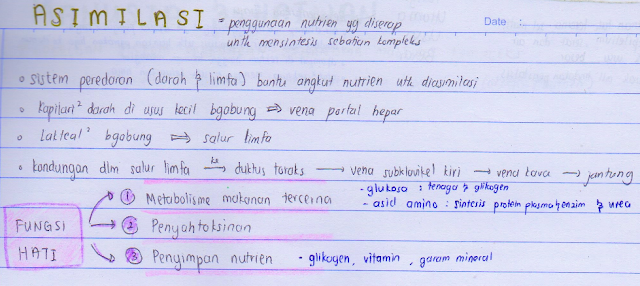 ASIMILASI = penggunaan nutrien yg diserap
untk mensintesis sebatian kompleks
Date :
• sistem peredaran (darah & limfa) bantu angkut nutrien utk diasimilasi
• Kapilari² darah di usus kecil bgabung ⇒ vena portal hepar
• Lakteal² bgabung ⇒ salur limfa
• kandungan dlm salur limfa ke→ duktus toraks → vena subklavikel kiri → vena kava → jantung
FUNGSI
HATI
① Metabolisme makanan tercerna
- glukosa : tenaga & glikogen
- asid amino : sintesis protein plasma/enzim & urea
② Penyahtoksinan
③ Penyimpan nutrien - glikogen, vitamin, garam mineral